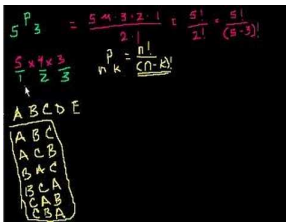 5 P 3 = 5·4·3·2·1 / 2·1 = 5! / 2! = 5! / (5-3)!
5/1 × 4/2 × 3/3
n P k = n! / (n-k)!
A B C D E
A B C
A C B
B A C
B C A
C A B
C B A